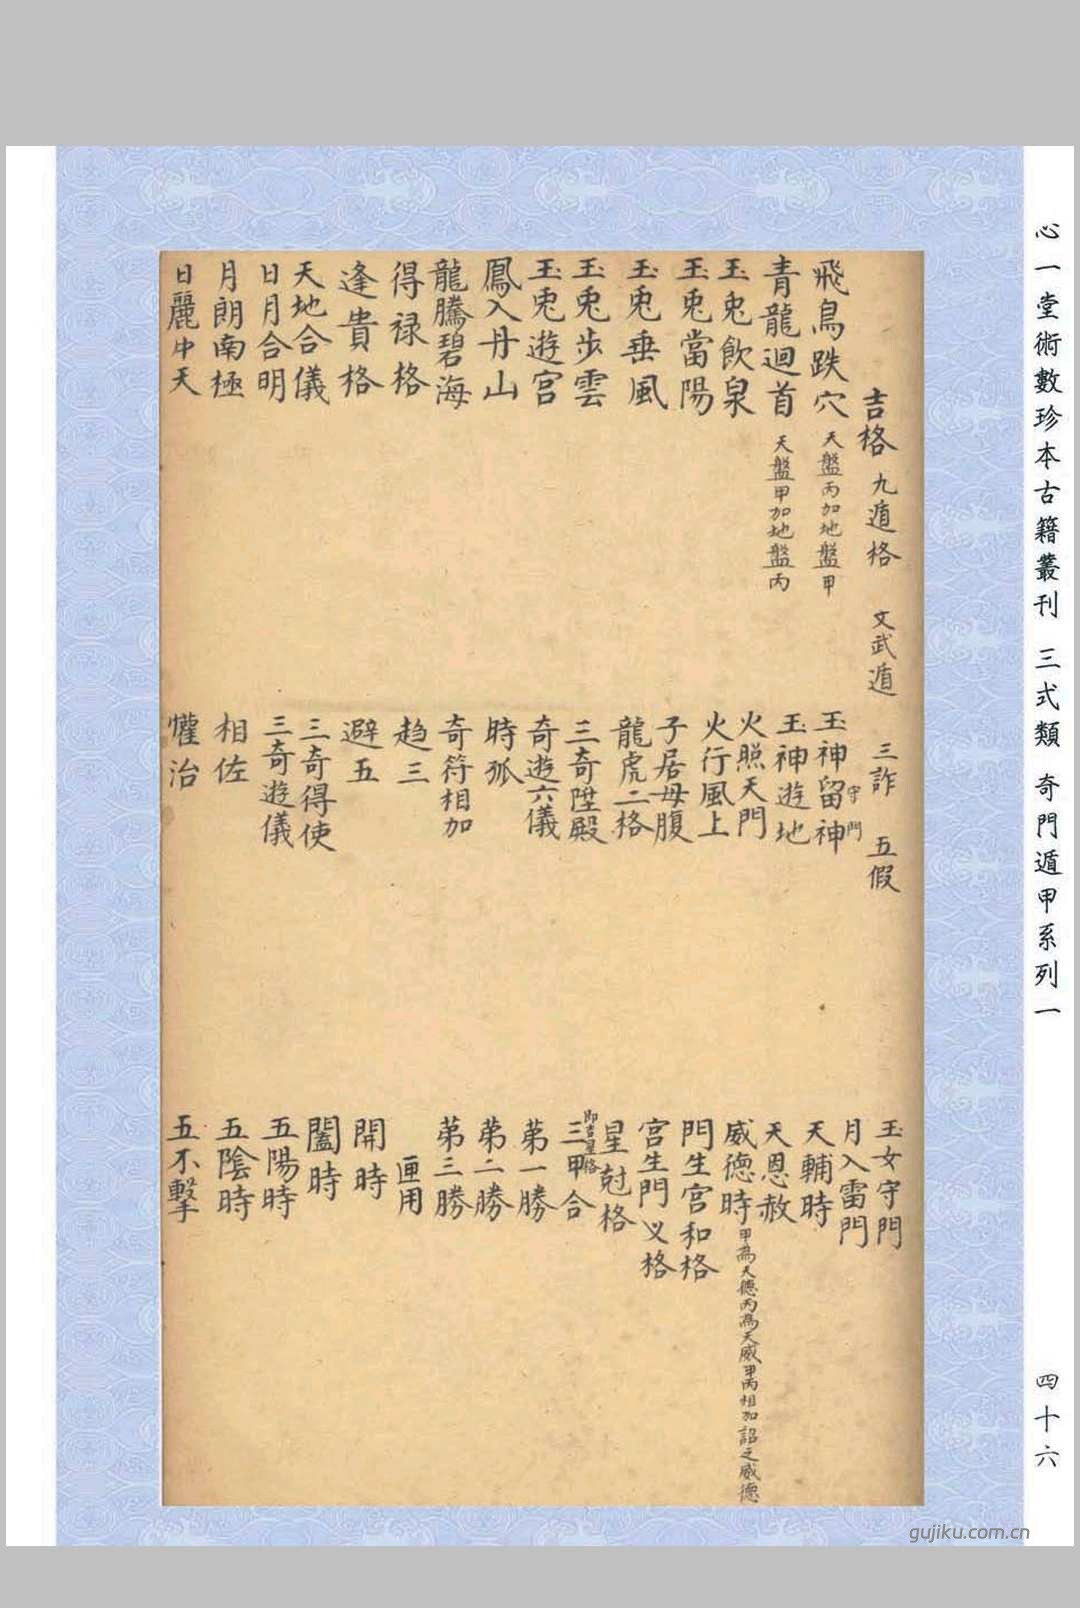 心一堂術數珍本古籍叢刊 三式類 奇門遁甲系列一
四十六
吉格 九遁格 文武遁 三詐 五假
飛鳥跌穴 天盤丙加地盤甲
青龍迴首 天盤甲加地盤丙
玉兎飲泉
玉兎當陽
玉兎乗風
玉兎步雲
玉兎遊宮
鳳入丹山
龍騰碧海
得禄格
逢貴格
天地合儀
日月合明
月朗南極
日麗中天
玉神留神 守門
玉神遊地
火照天門
火行風上
子居母腹
龍虎二格
三奇陞殿
奇遊六儀
時孤
奇符相加
趋三
避五
三奇得使
三奇遊儀
相佐
懽治
玉女守門
月入雷門
天輔時
天恩赦
威德時 甲為天德丙為天威甲丙相加詔之威德
門生宮和格
宮生門义格
星尅格
三甲合 即吉星格
第一勝
第二勝
第三勝
匣用
開時
闔時
五陽時
五陰時
五不擊
gujiku.com.cn